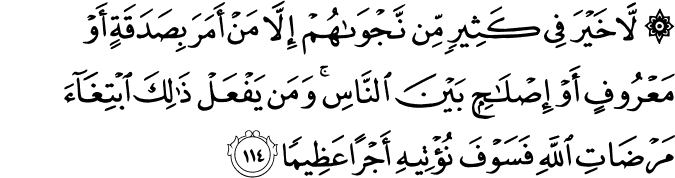 ۞ لَّا خَيْرَ فِى كَثِيرٍ مِّن نَّجْوَىٰهُمْ إِلَّا مَنْ أَمَرَ بِصَدَقَةٍ أَوْ
مَعْرُوفٍ أَوْ إِصْلَـٰحٍۭ بَيْنَ ٱلنَّاسِ ۚ وَمَن يَفْعَلْ ذَٰلِكَ ٱبْتِغَآءَ
مَرْضَاتِ ٱللَّهِ فَسَوْفَ نُؤْتِيهِ أَجْرًا عَظِيمًا ١١٤